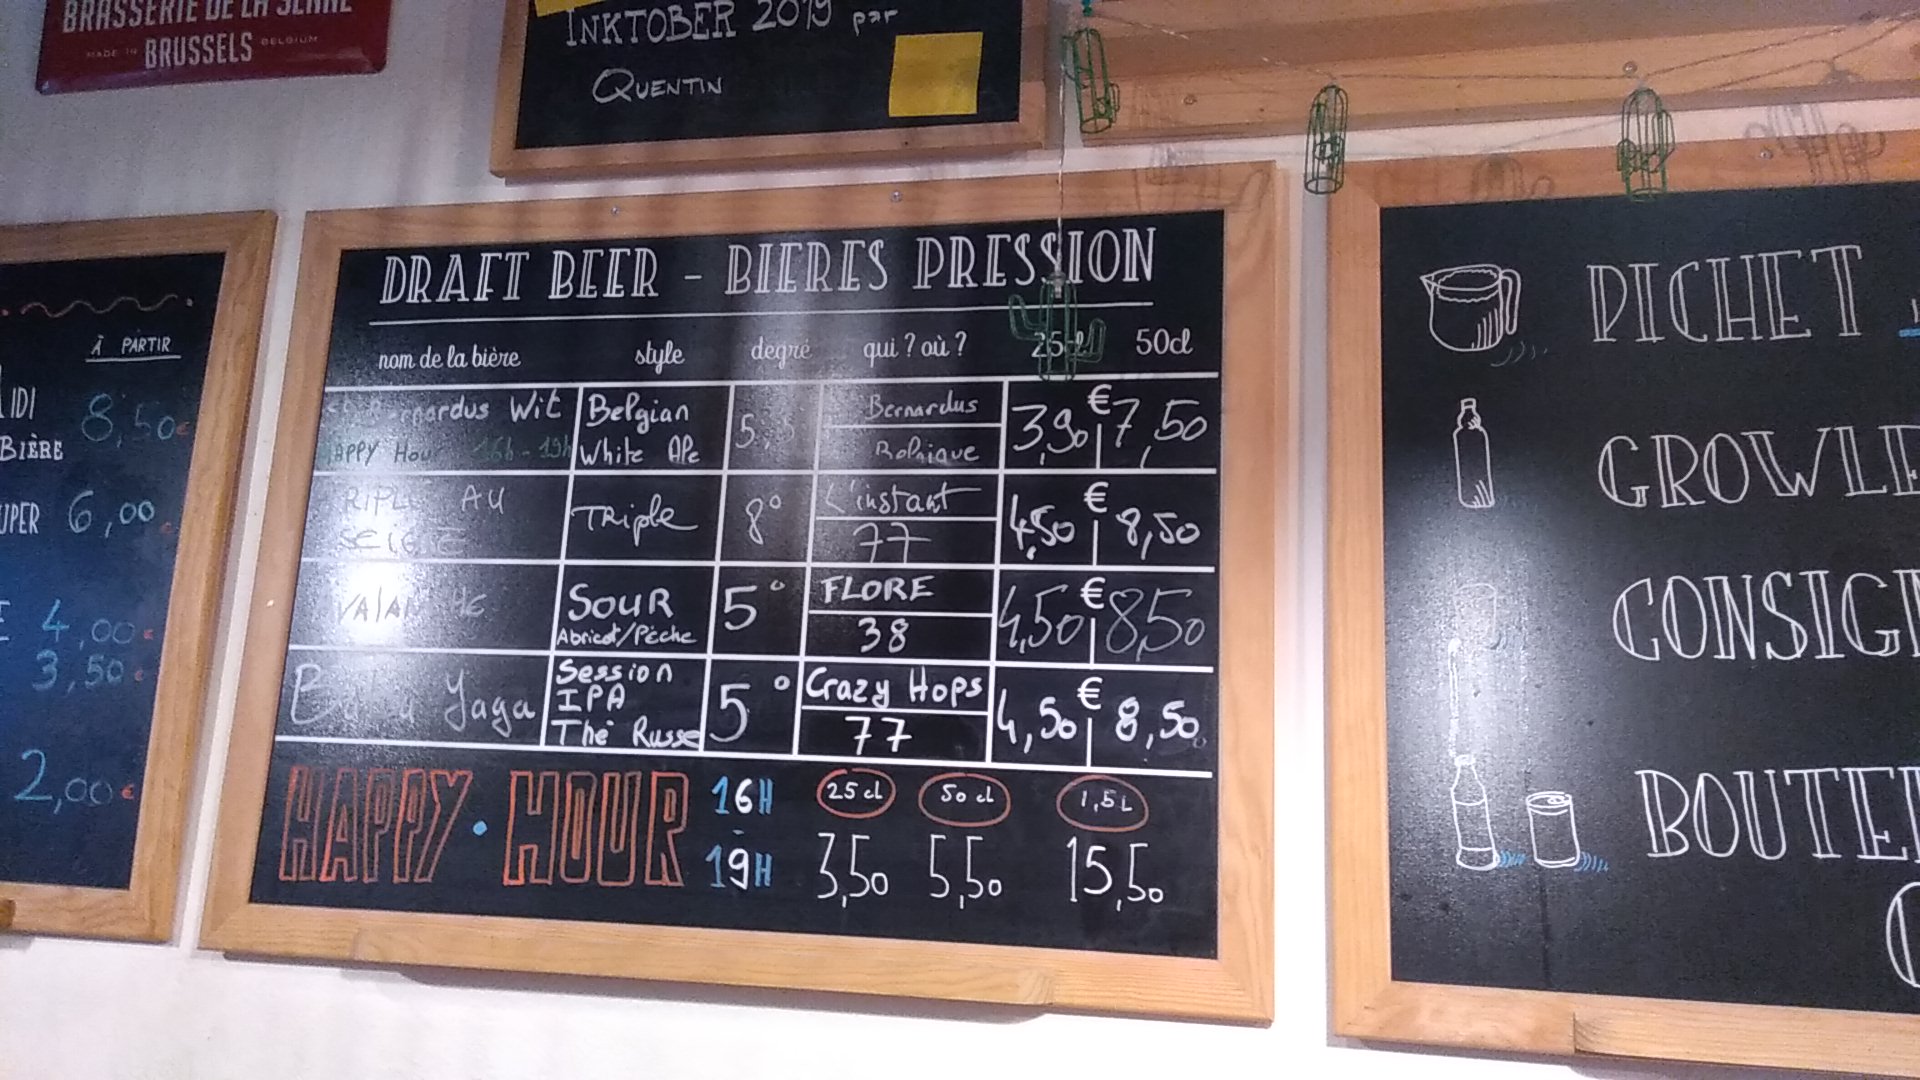 BRASSERIE DE LA SENNE
MADE IN BRUSSELS BELGIUM
INKTOBER 2019 par
QUENTIN
À PARTIR
8,50€
BIÈRE
6,00
4,00€
3,50€
2,00€
DRAFT BEER - BIERES PRESSION
nom de la bière style degré qui ? où ? 25cl 50cl
Bernardus Wit Belgian White Ale Bernardus Belgique 3,90 € 7,50
HAPPY Hour 16h - 19h
TRIPLE AU Triple 8° L'instant 77 4,50 € 8,50
SOUR Abricot/Pêche 5° FLORE 38 4,50 € 8,50
Baba Yaga Session IPA Thé Russe 5° Crazy Hops 77 4,50 € 8,50
HAPPY · HOUR 16H - 19H
25 cl 50 cl 1,5 L
3,50 5,50 15,50
PICHET
GROWLE
CONSIG
BOUTE